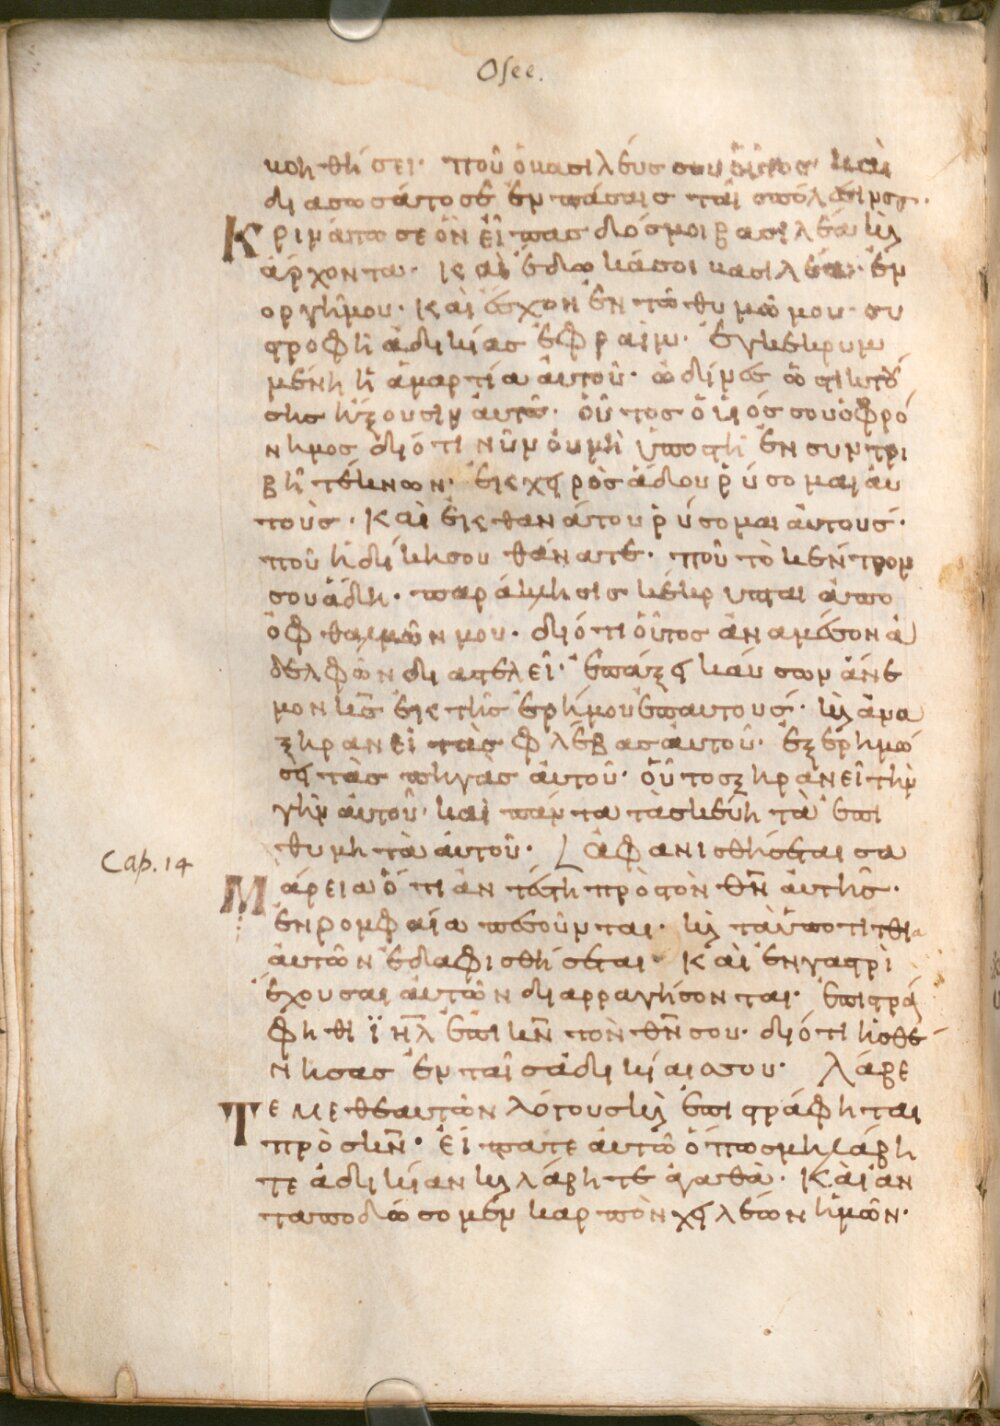 κοηθήσει· ποῦ ὁ βασιλεύς σου οὗτος· καὶ
διασωσάτο σε ἐν πάσαις ταῖ σπόλεσί
Κριμάτω σε ὃν εἶπας δός μοι βασιλέα κ̀
ἄρχοντα· καὶ ἔδωκά σοι βασιλέα· ἐν
οργῆ μου· καὶ ἔσχον ἐν τῶ θυμῶ μου· συ
στροφὴ ἀδικίας ἐφραὶμ· ἐγκεκρυμ
μένη ἡ ἁμαρτία ἀυτοῦ· ὠδίνες ὡ τικτού
σης ἥξουσιν ἀυτῶ· οὗτος ὁ υἱός σου ὁ φρό
νημος διότι νῦν ὀυ μὴ ὑποστῆ ἐν συντρι
βῆ τέκνων· ἐκ χειρὸς ἅδου ῥύσομαι ἀυ
τοὺς· καὶ ἐκ θανάτου ῥύσομαι ἀυτούς·
ποῦ ἡ δίκη σου θάνατε· ποῦ τὸ κέντρον
σου ἅδη· παράκλησις κέκρυπται ἀπο
ὀφθαλμῶν μου· διότι οὗτος ἀναμέσον ἀ
δελφῶν διαστελεῖ· ἐπάξει καύσων ἄνε
μον κ̅ς̅ ἐκ τῆς ἐρήμου ἐπαυτούς· κ̀ ἀνα
ξηρανεῖ τὰς φλέβας ἀυτοῦ· ἐξερημώ
σει τὰς πηγὰς ἀυτοῦ· οὗτος ξηρανεῖ τὴν
γῆν ἀυτοῦ· καὶ πάντα τὰ σκεύη τὰ ἐπι
θυμητὰ ἀυτοῦ· ἀφανισθήσεται σα
Μάρεια ὅτι ἀντέστη πρὸς τὸν θ̅ν̅ ἀυτῆς·
ἐν ρομφαία πεσοῦνται· κ̀ τὰ ὑποτιτθια
ἀυτῶν ἐδαφισθήσεται· καὶ ἐν γαστρὶ
ἔχουσαι ἀυτῶν διαρραγήσονται· ἐπιστρά
φηθι ϊ̅η̅λ̅ ἐπὶ κ̅ν̅ τὸν θ̅ν̅ σου· διότι ἠσθέ
νησας ἐν ταῖς ἀδικίαις σου· λάβε
Τε μεθεαυτῶν λόγους κ̀ ἐπιστράφηται
πρὸς κ̅ν̅· εἴπατε ἀυτῶ ὅπως μὴ λάβη
τε ἀδικίαν κ̀ λάβητε ἀγαθὰ· καὶ ἀν
ταποδώσομεν καρπὸν χειλέων ἡμῶν·
Osee.
Cap. 14